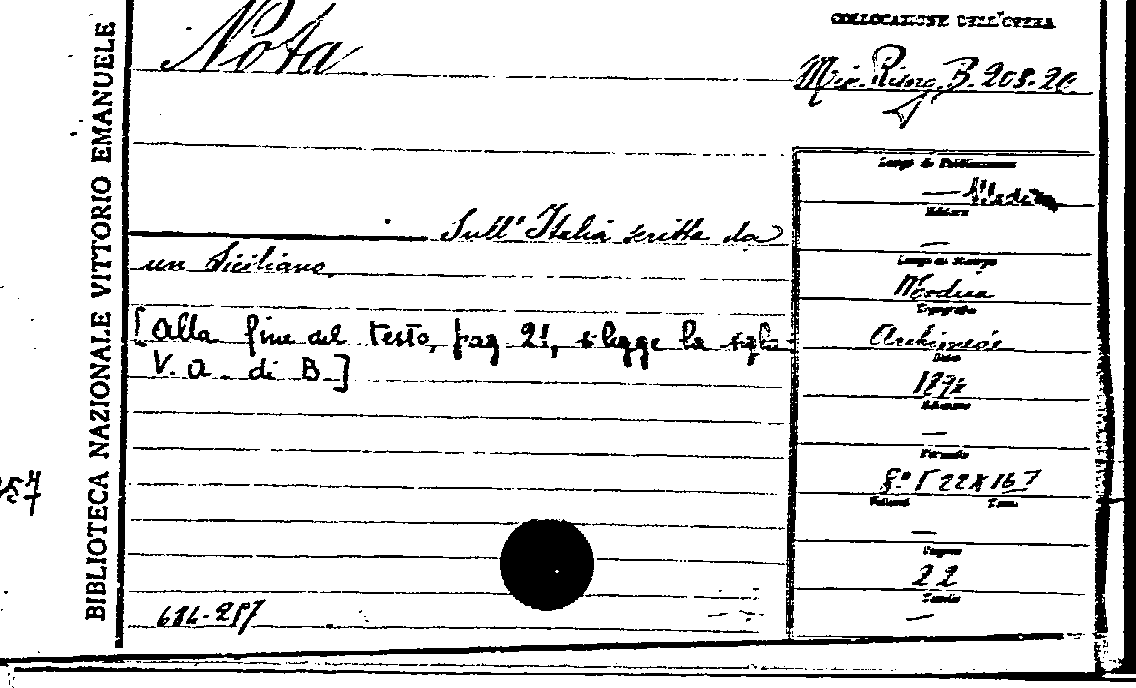 BIBLIOTECA NAZIONALE VITTORIO EMANUELE
Nota
COLLOCAZIONE DELL'OPERA
Misc. Risorg. B. 208. 20
Sull'Italia scritta da
un Siciliano.
[Alla fine del testo, pag 21, si legge la sigla
V. A. di B]
684-287
Luogo di Pubblicazione
Editore
—
Luogo di Stampa
Modica
Tipografia
Archimede
Data
Edizione
—
Formato
8.° [22x16]
Volumi
Tomo
—
Pagine
22
Tavole
—